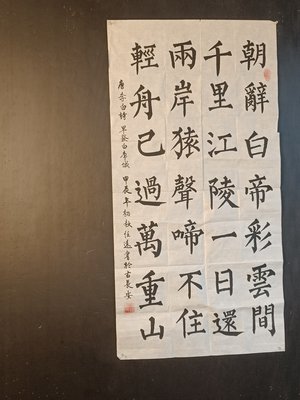 朝辭白帝彩雲間
千里江陵一日還
兩岸猿聲啼不住
輕舟已過萬重山
唐李白詩早發白帝城甲辰年初秋書於古長安